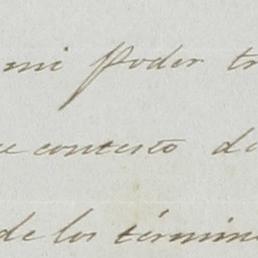 mi Poder tr
e contesto de
de los términ